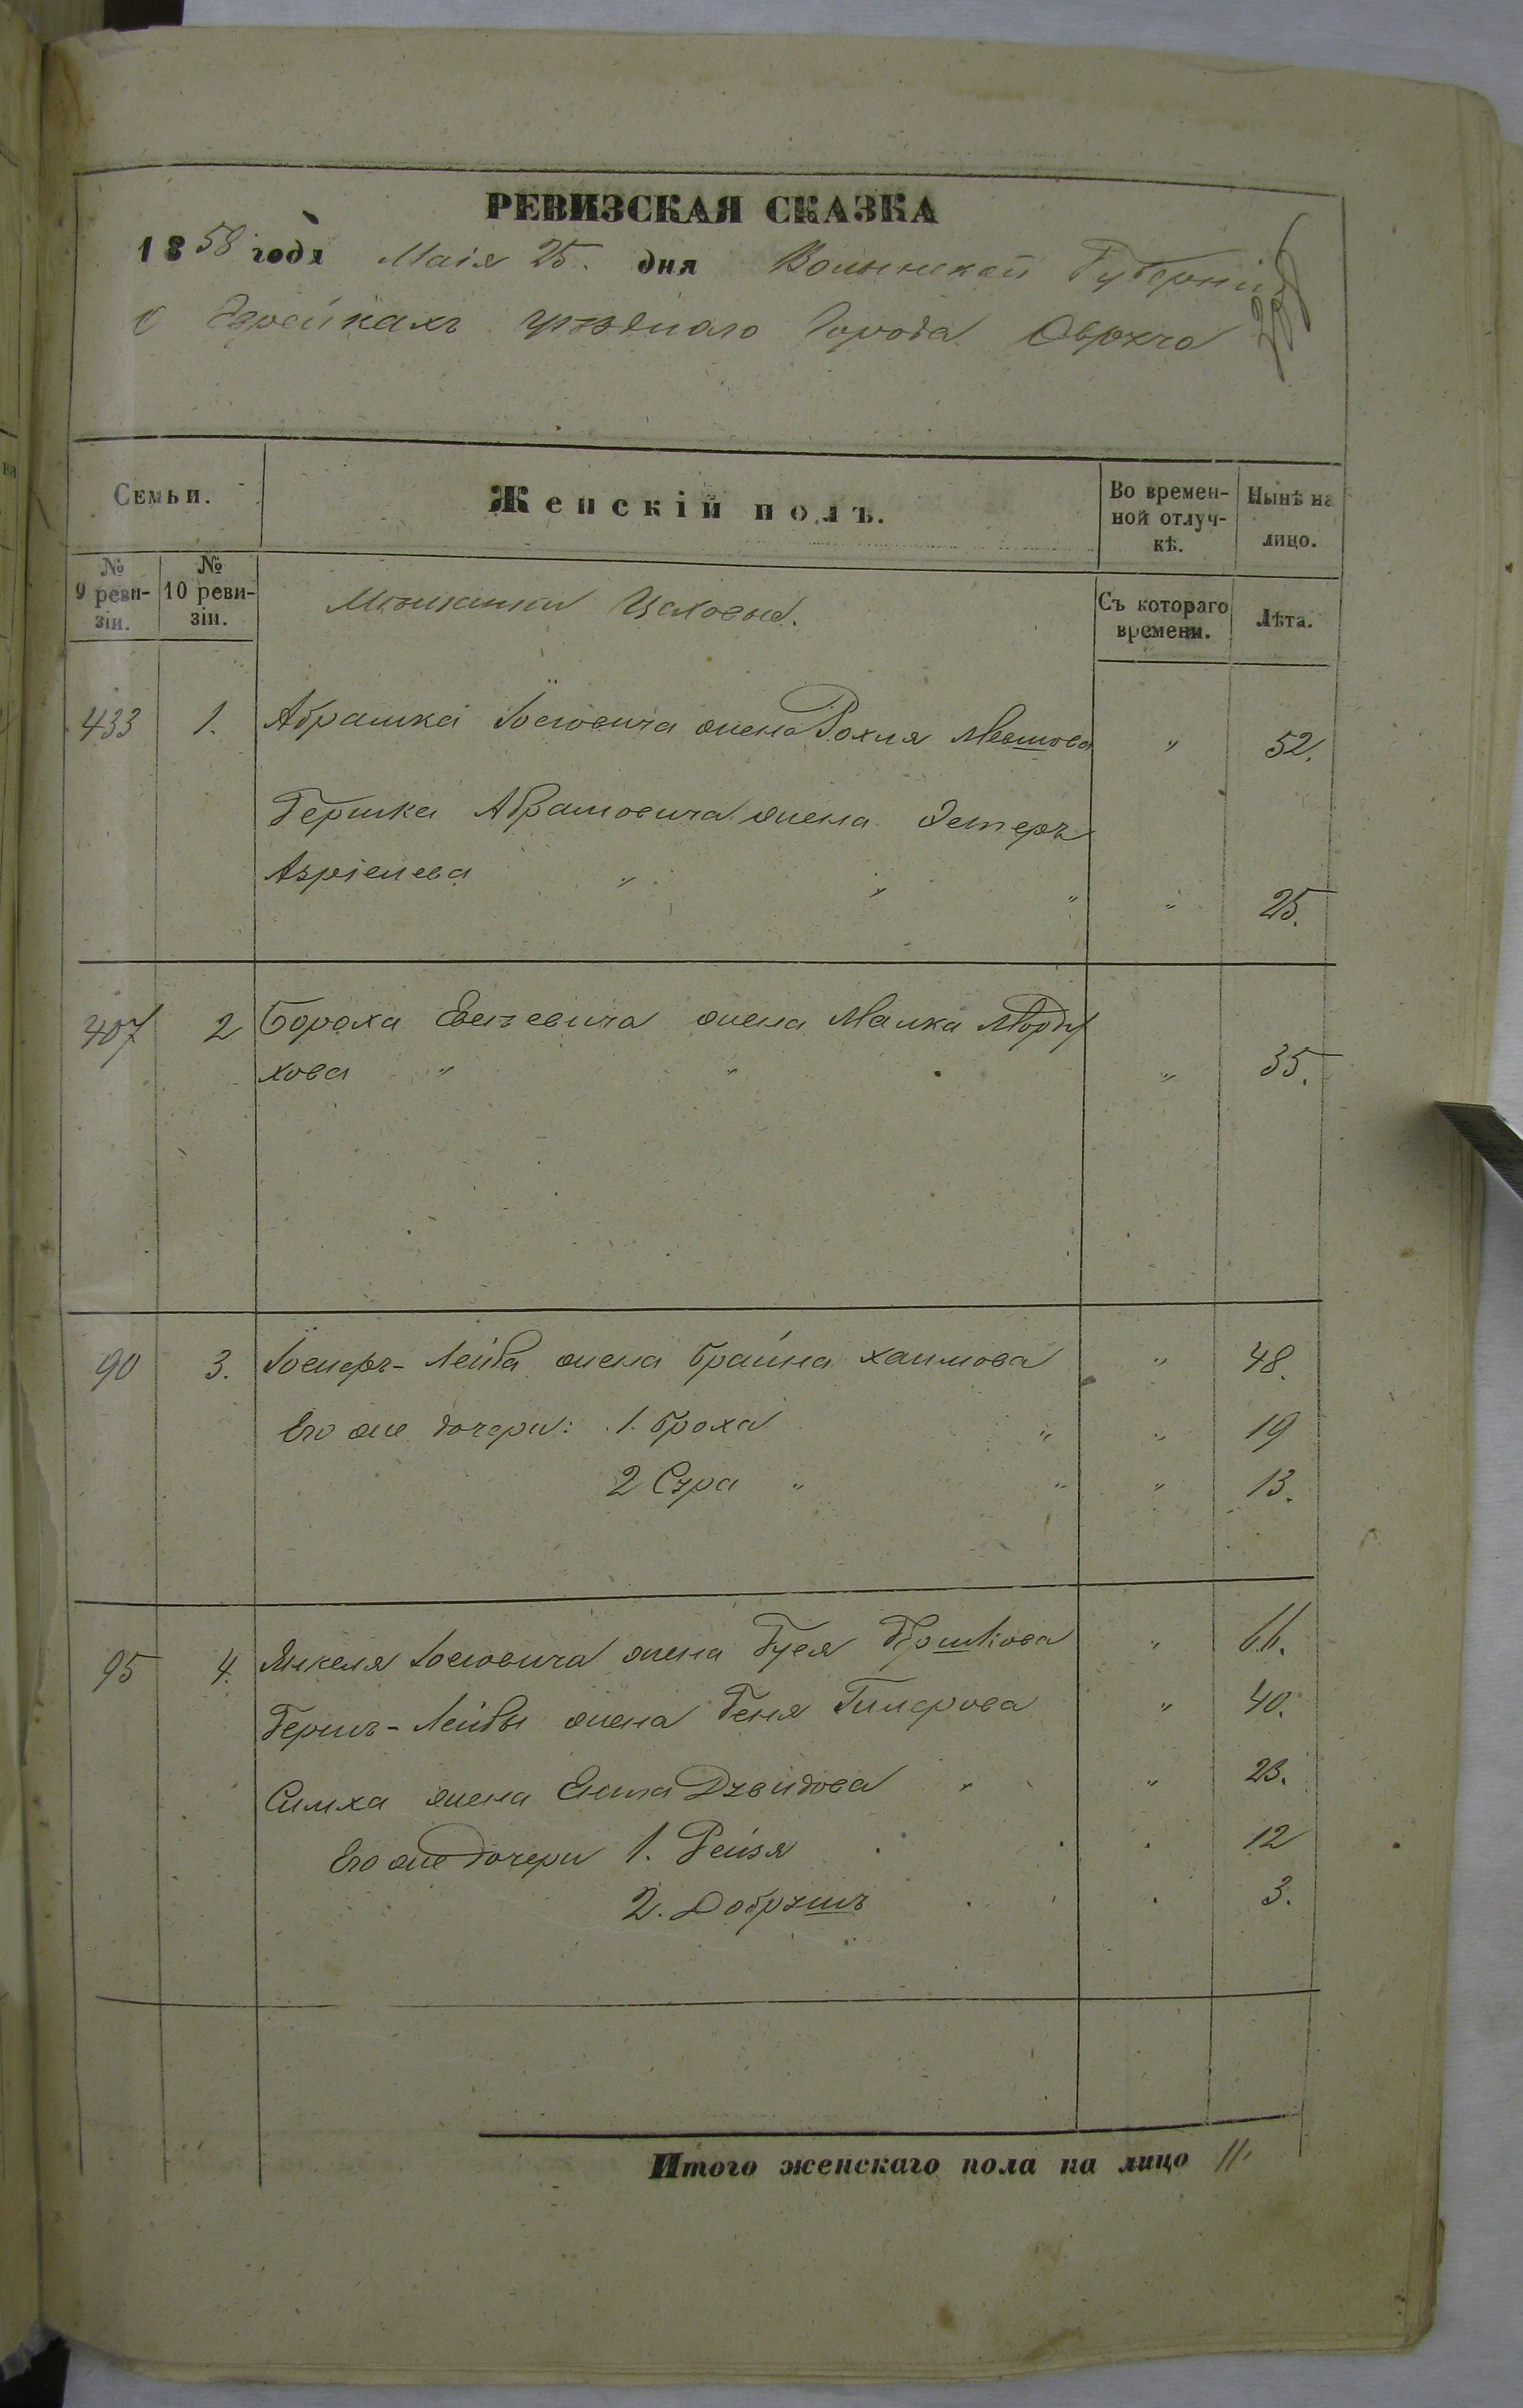 РЕВИЗСКАЯ СКАЗКА
1858 года Маія 25. дня Волынской Губерніи
О Еврейкахъ уѣзднаго Города Овруча
Семьи.
Женскій полъ.
Во времен-
ной отлуч-
кѣ.
Нынѣ на
лицо.
№
9 реви-
зіи.
№
10 реви-
зіи.
Мѣщанки
Съ котораго
времени.
Лѣта.
433 1. Абрашка Іосіовича жена Рохля " 52.
Гершка Абрамовича жена Эстеръ
Азріелева " " " " 25.
407 2 Бороха жена Малка Морду
хова " " " 35.
90 3. Іосифъ-Лейба жена Брайна Хаимова " 48.
Его же дочери: 1. Броха " " 19
2 Сура " " " 13.
95 4. Янкеля Іосіовича жена Гершкова " 66.
Гершъ-Лейбы жена Геня " 40.
Симха жена Ента Дувидова " " 23.
Его же дочери 1. Рейзя 12
2. Добрушъ 3.
Итого женскаго пола на лицо 11.